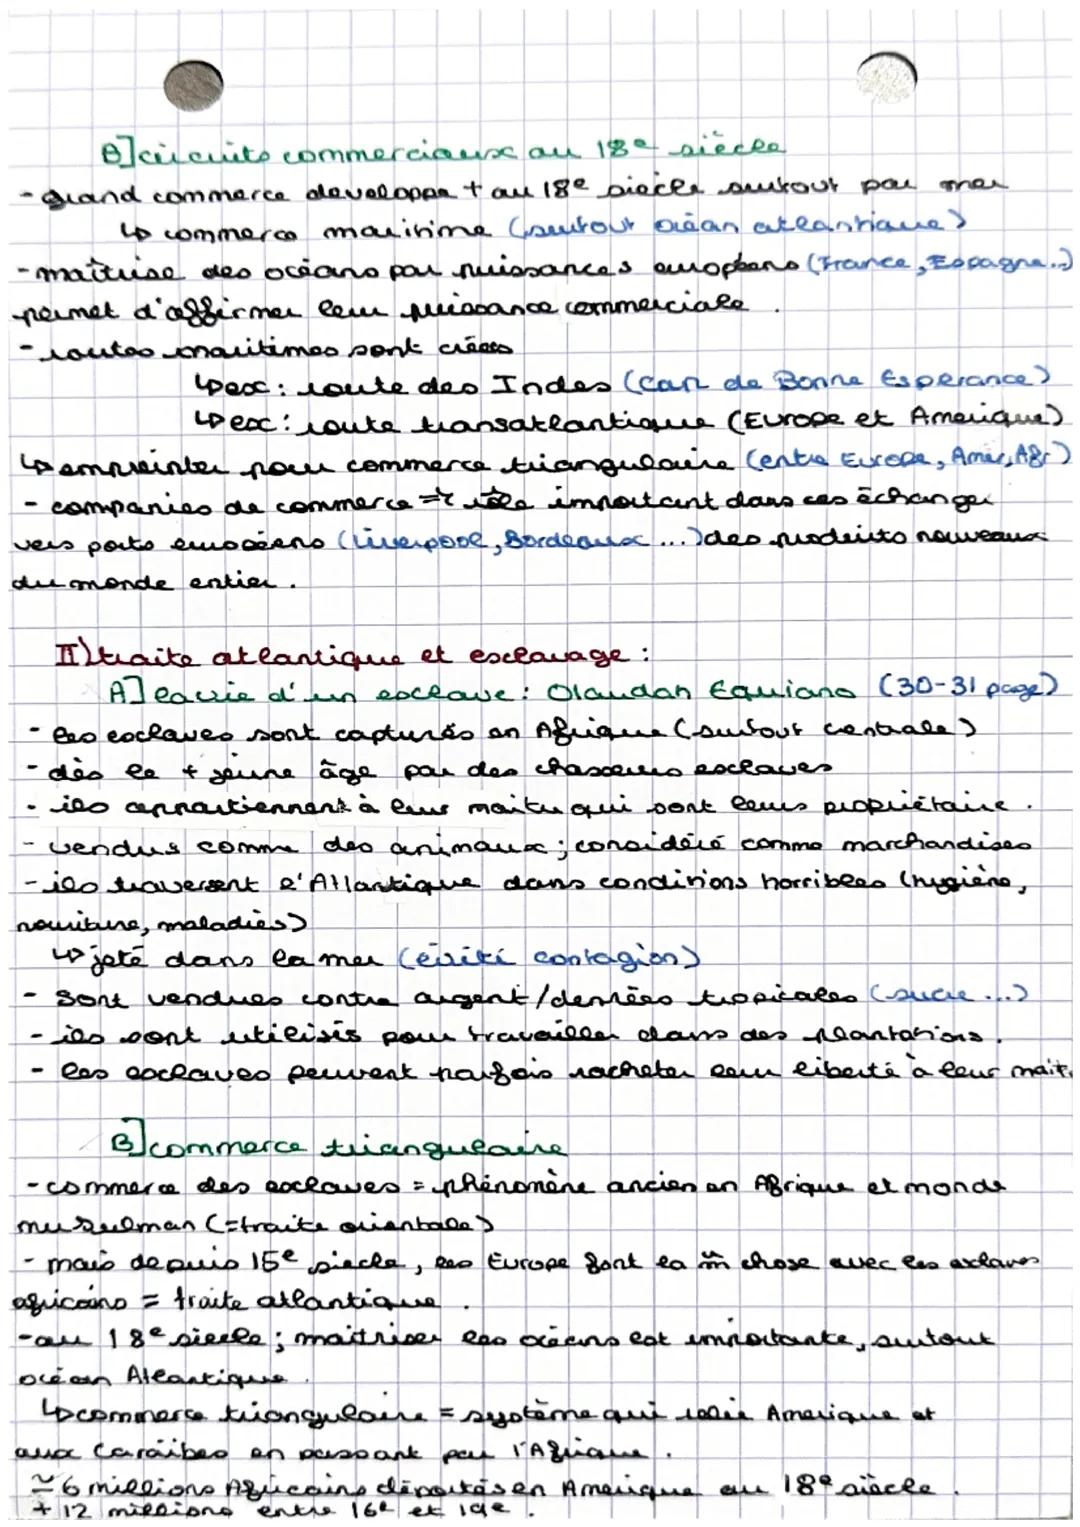 B] circuits commerciaux au 18e siècle
- grand commerce developpe + au 18e siecle surtout par mer
↳ commerce maritime (surtout océan atlantique)
- maîtrise des océans par puissances européens (France, Espagne..)
permet d'affirmer leur puissance commerciale.
- routes maritimes sont créées
↳ ex: route des Indes (Cap de Bonne Esperance)
↳ ex: route transatlantique (Europe et Amerique)
↳ emprunter pour commerce triangulaire (entre Europe, Amér, Afr)
- companies de commerce => rôle important dans ces échanges
vers ports européens (Liverpool, Bordeaux ...) des produits nouveaux
du monde entier.
II) traite atlantique et esclavage :
A] la vie d'un esclave: Olaudah Equiano (30-31 page)
- les esclaves sont capturés en Afrique (surtout centrale)
- dès le + jeune âge par des chasseurs esclaves
- ils appartiennent à leur maitre qui sont leurs propriétaire.
- vendus comme des animaux; considéré comme marchandises
- ils traversent l'Atlantique dans conditions horribles (hygiène,
nourriture, maladies)
↳ jeté dans la mer (évité contagion)
- sont vendues contre argent/denrées tropicales (sucre ...)
- ils sont utilisés pour travailler dans des plantations.
- les esclaves peuvent parfois racheter leur liberté à leur mait.
B] commerce triangulaire
- commerce des esclaves = phénomène ancien en Afrique et monde
musulman (=traite orientale)
- mais depuis 15e siecle, les Europe font la m̂ chose avec les esclaves
africains = traite atlantique.
- au 18e siecle; maitriser les océans est importante, surtout
océan Atlantique.
↳ commerce triangulaire = système qui relie Amerique et
aux Caraïbes en passant par l'Afrique.
≃ 6 millions Africains déportés en Amerique au 18e siècle.
+ 12 millions entre 16e et 19e.